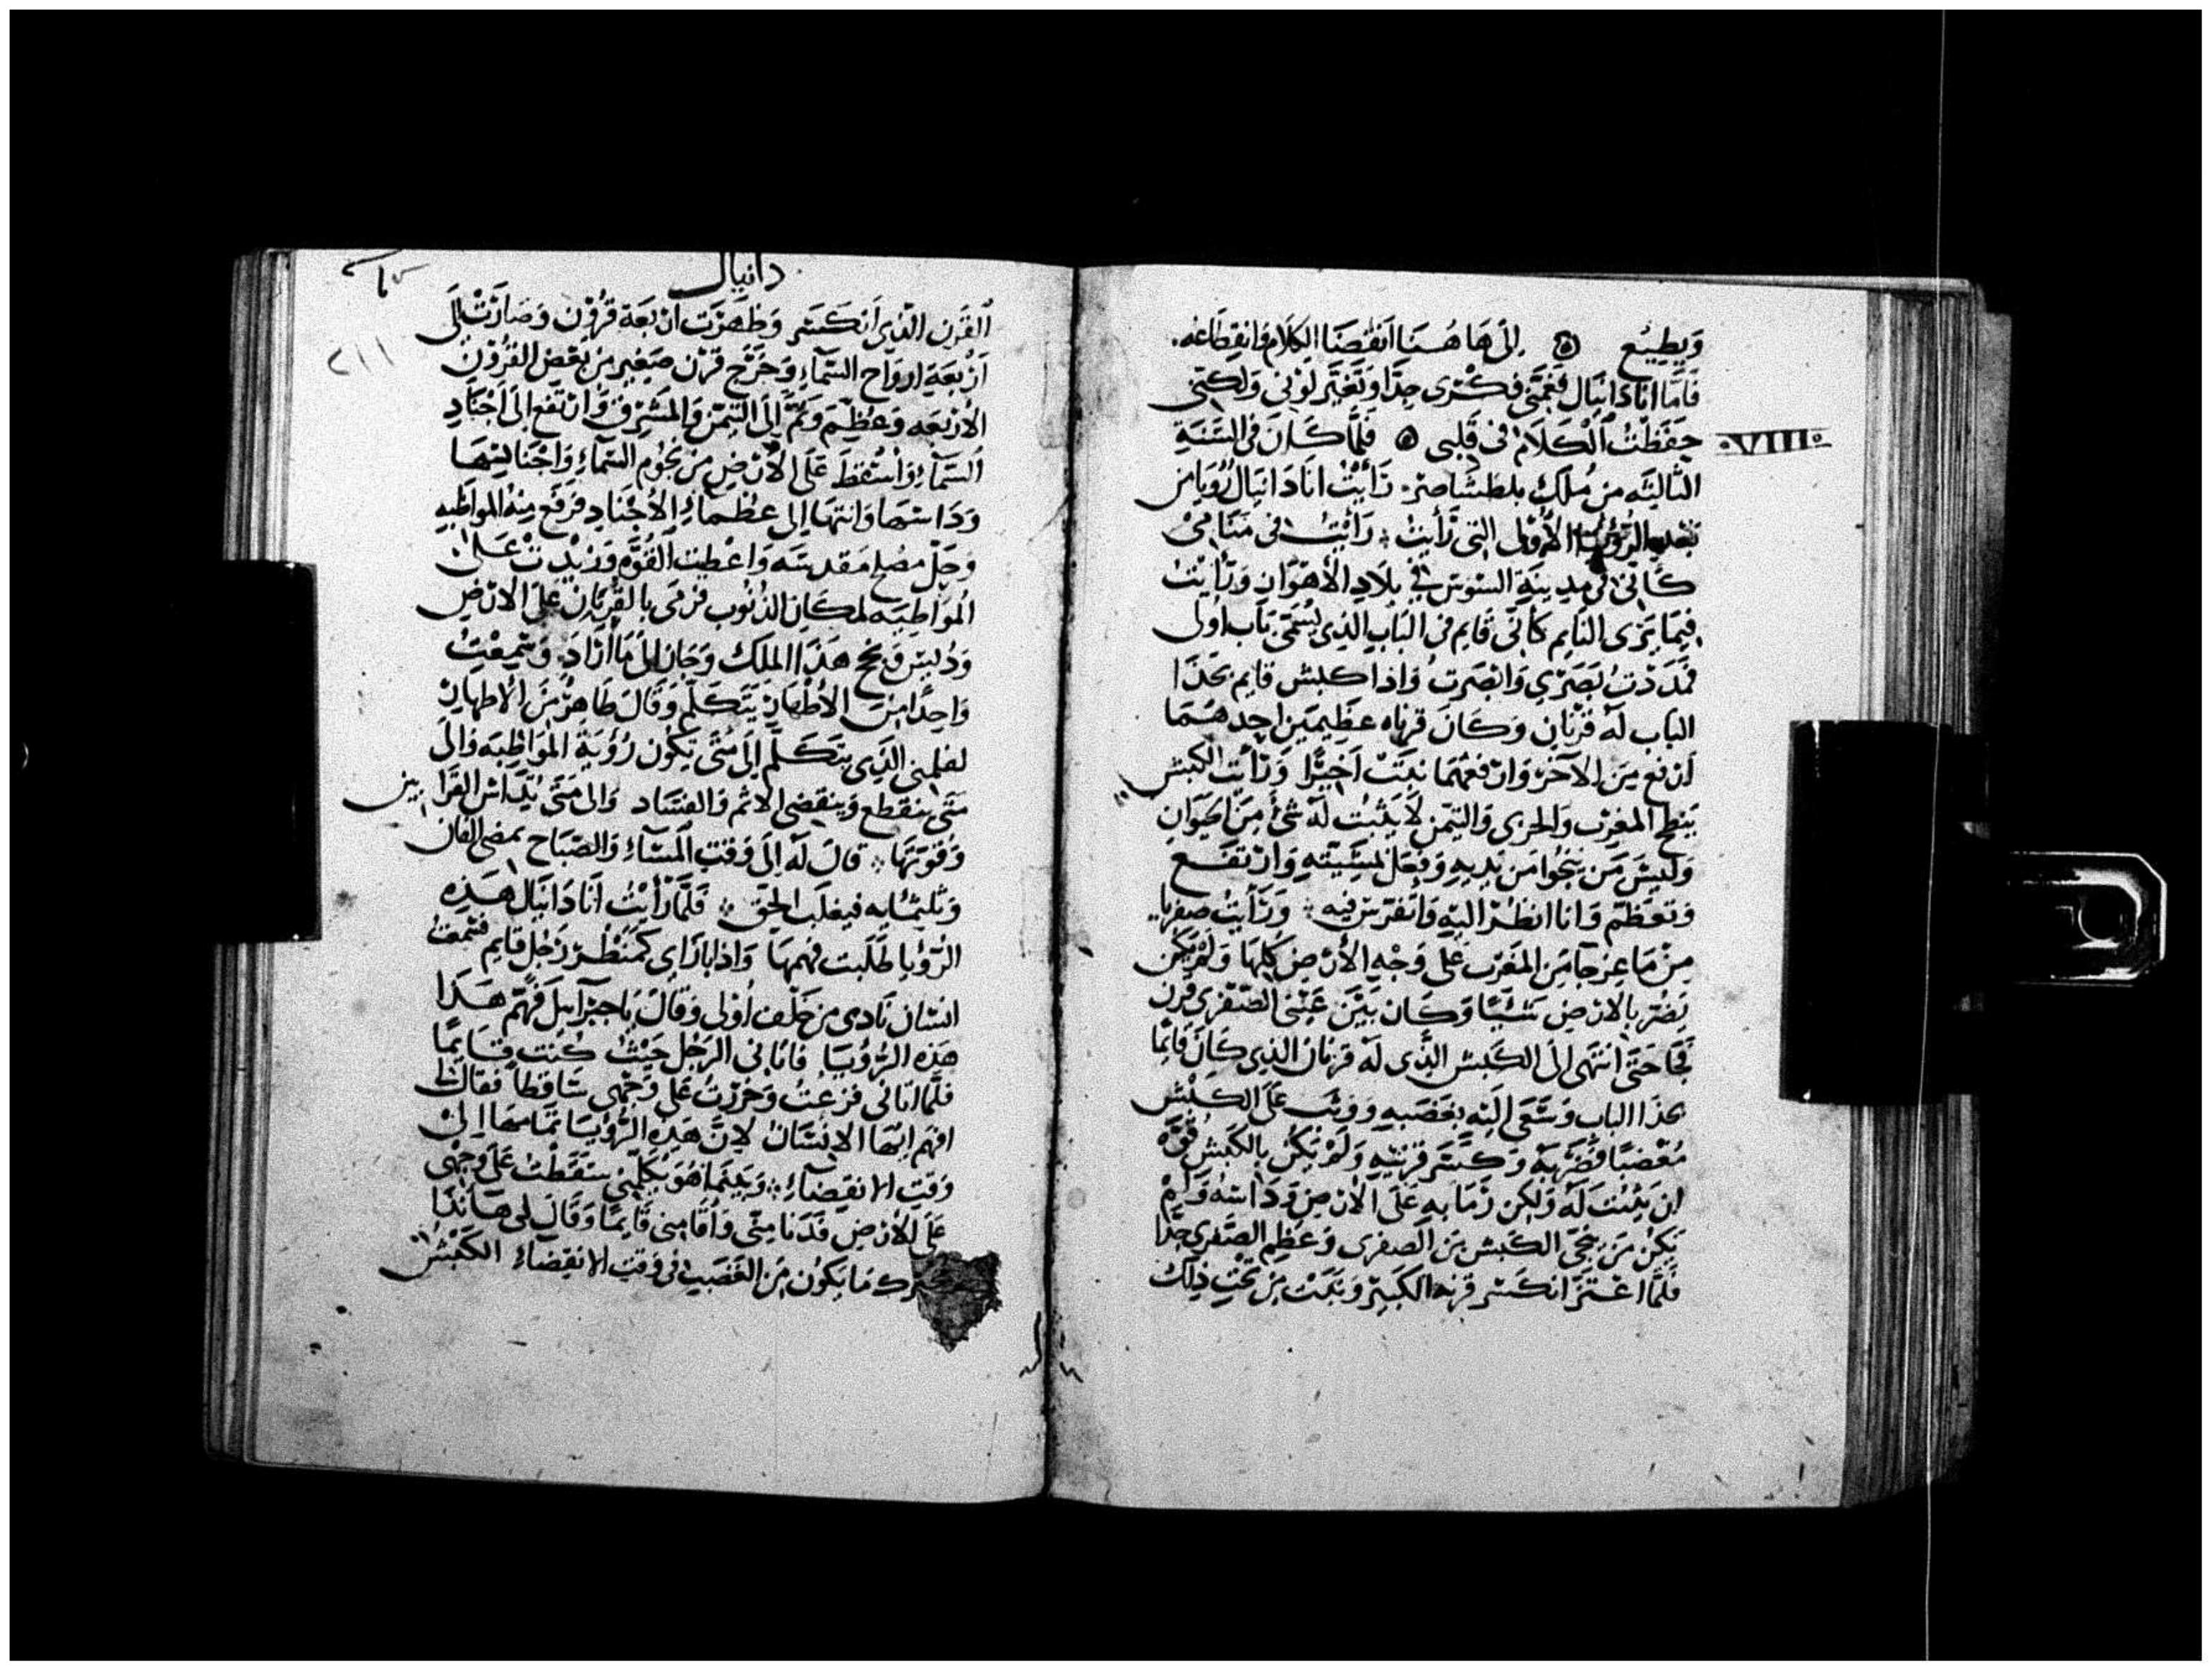 ويطيع ۞ إلى هاهنا انقضنا الكلام وانقطاعه.
فاما انا دانيال فغمتني فكرى جدا وتغير لونى ولكنى
حفظت الكلام فى قلبى ۞ فلما كان فى السنة
·VIII·
الثالثه من ملك بلطشاصر رأيت انا دانيال رويا من
بعد الرؤيا الأولى التى رأيت رأيت فى منامى
كانى فى مدينة السوس فى بلاد الأهواز ورأيت
فيما يرى النايم كانى قايم فى الباب الذى يسمى باب اولى
فمددت بصرى وابصرت واذا كبش قايم بحذا
الباب له قرنان وكان قرناه عظيمين احدهما
ارفع من الآخر وارفعهما نبتت اخيرا ورأيت الكبش
ينطح المغرب والجربى والتيمن لا يثبت له شئ من الحيوان
وليس من ينجوا من يديه وفعل لمشيته وارتفع
وتعظم وانا انظر اليه واتفرس فيه ورأيت صفريا
من ماعز جا من المغرب على وجه الأرض كلها ولم يكن
يضر بالارض شيا وكان بين عينى الصفرى قرن
فجا حتى انتهى الى الكبش الذى له قرنان الذى كان قائما
بحذا الباب وسعى اليه بغضبه ووثب على الكبش
مغضبا فضربه وكسر قرنيه ولم يكن بالكبش قوه
ان يثبت له ولكن رما به على الارض وداسه ولم
يكن من ينجى الكبش من الصفرى وعظم الصفرى جدا
فلما اعتز انكسر قرنه الكبير ونبتت من تحت ذلك
دانيال
٢١١
القرن الذى انكسر وظهرت اربعة قرون وصارت الى
اربعة ارواح السمآء وخرج قرن صغير من بعض القرون
الاربعه وعظم وتم الى التيمن والمشرق وارتفع الى اجناد
السمآء واسقط على الأرض من نجوم السمآء واجنادسها
وداسها وانتها الى عظمآء الأجناد فرفع منه المواظبه
وحل مصلح مقدسه واعطيت القوه وزيدت على
المواظبه لمكان الذنوب فرمى بالقربان على الارض
ودليس ونجح هذا الملك وجاز الى ما أراد وسمعت
واحدا من الأطهار يتكلم وقال طاهر من الاطهار
لفلمنى الذى يتكلم الى متى تكون رؤية المواظبه والى
متى ينقطع وينقضى الاثم والفساد والى متى يداس القرابين
وقوتها قال له الى وقت المسآء والصباح يمضى الفان
وثلثمايه فيغلب الحق فلما رأيت انا دانيال هذه
الرؤيا طلبت فهمها واذا بازاى كمنظر رجل قايم فسمعت
انسان نادى من خلف اولى وقال يا جبرآيل فهم هذا
هذه الرؤيا فاتانى الرجل حيث كنت قايما
فلما اتانى فزعت وخررت على وجهى ساقطا فقال
افهم ايها الانسان لان هذه الرؤيا تمامها الى
وقت الانقضآء وبينما هو يكلمنى سقطت على وجهى
على الأرض فدنا منى واقامنى قايما وقال لى هانذا
ما يكون من الغضب فى وقت الانقضاء الكبش